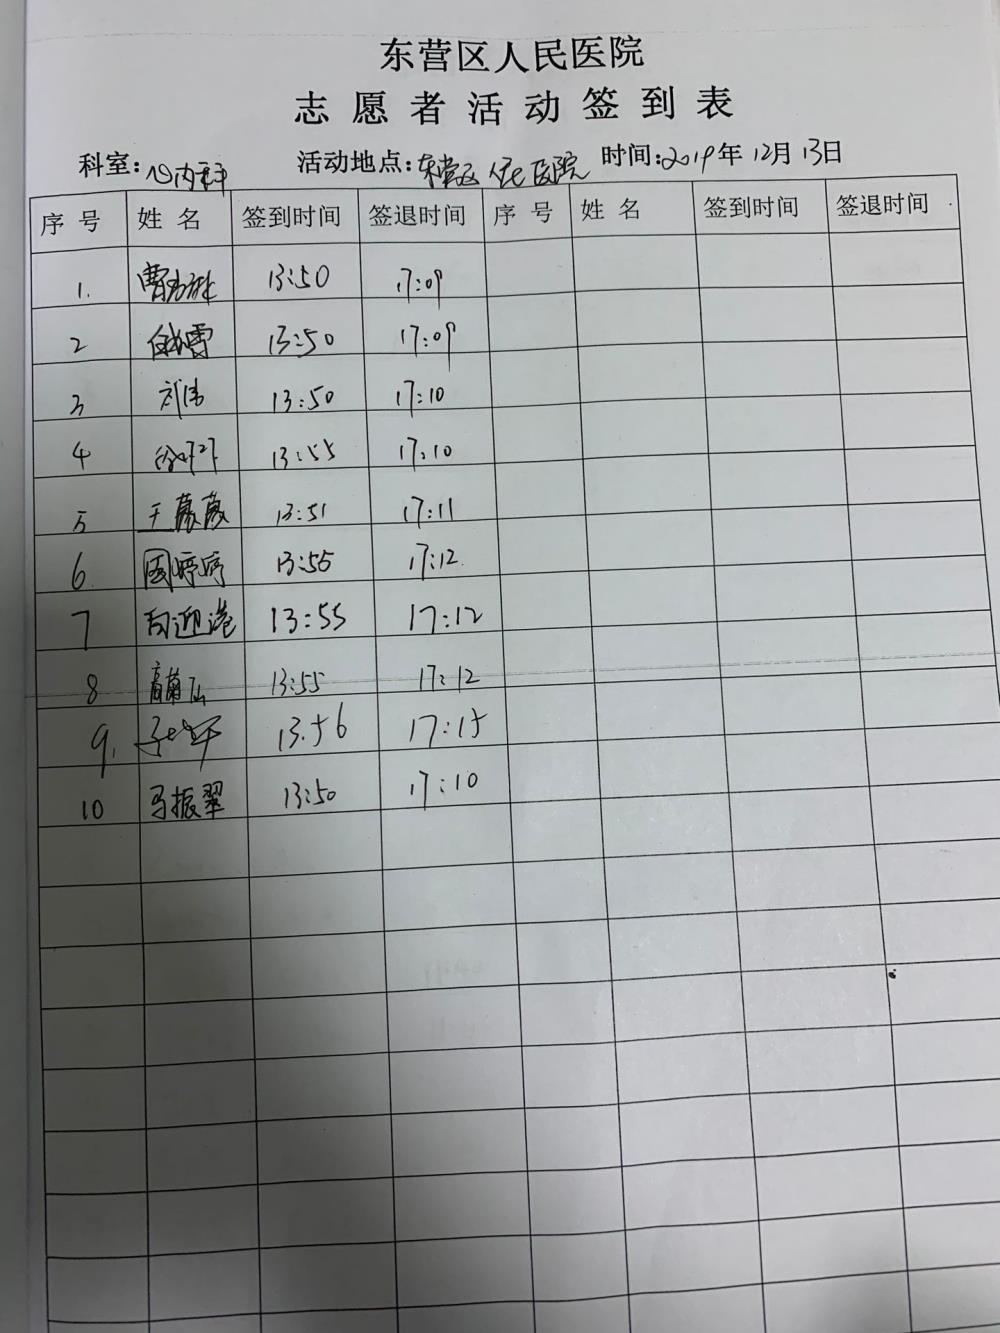 东营区人民医院
志愿者活动签到表
科室:心内科 活动地点:东营区人民医院 时间:2019年12月13日
序号 姓名 签到时间 签退时间 序号 姓名 签到时间 签退时间
1. 13:50 17:09
2 13:50 17:09
3 刘伟 13:50 17:10
4 13:55 17:10
5 王蒙蒙 13:51 17:11
6 周婷婷 13:55 17:12
7 迎港 13:55 17:12
8 13:55 17:12
9. 13.56 17:15
10 马振翠 13:50 17:10